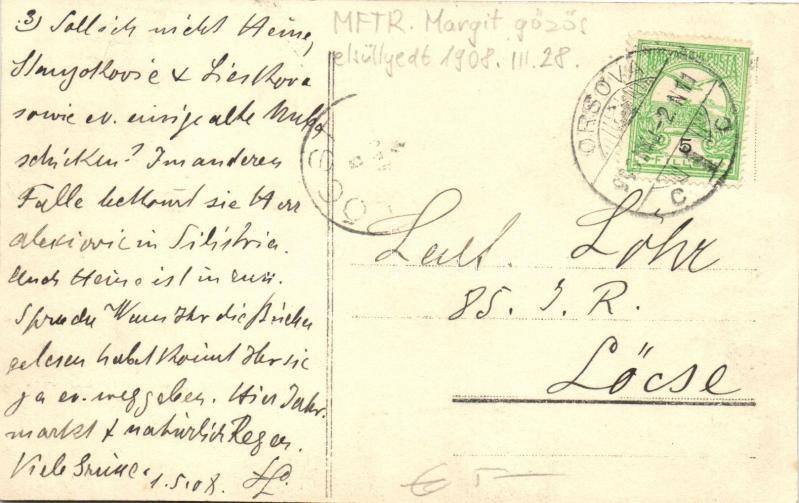 3) Soll ich nicht Heine,
& Lieskova
sowie ev. einige alte
schicken? Im anderen
Falle bekommt sie Herr
Alexiovic in Silistria.
Auch Heine ist in
Sprache Wenn Ihr die Bücher
gelesen habt könnt Ihr sie
ja ev. weggeben. Hier Jahr-
markt & natürlich Regen.
Viele Grüsse. 1.5.08
MFTR. Margit gőzös
elsüllyedt 1908. III. 28.
ORSOVA
Lőcse
Leut. Löhr
85. I. R.
Löcse